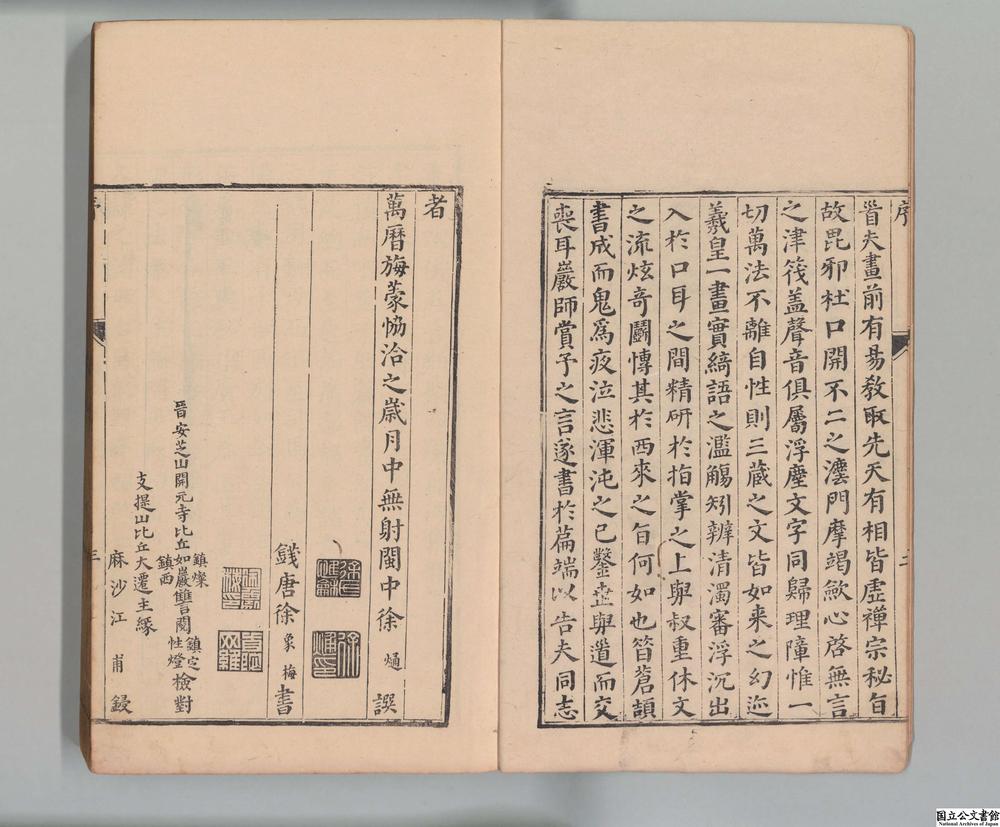 序
旨夫畫前有易敎取先天有相皆虛禪宗秘旨
故毘邪杜口開不二之灋門摩竭歛心啓無言
之津筏盖聲音俱屬浮塵文字同歸理障惟一
切萬法不離自性則三藏之文皆如来之幻迹
羲皇一畫實綺語之濫觴矧辨清濁審浮沉出
入於口耳之間精研於指掌之上與叔重休文
之流炫竒鬭慱其於西來之旨何如也昔蒼頡
書成而鬼爲夜泣悲渾沌之已鑿盍與遣而交
喪耳巖師賞予之言遂書於篇端以告夫同志
二
者
萬曆旃蒙恊洽之歲月中無射閩中徐 㷿 譔
錢唐徐 象梅 書
晉安芝山開元寺比丘如巖讐閱 鎮燦 鎮西 鎮定 性燈 檢對
支提山比丘大遷主緣
麻沙江 甫 鋟
序
三
国立公文書館
National Archives of Japan